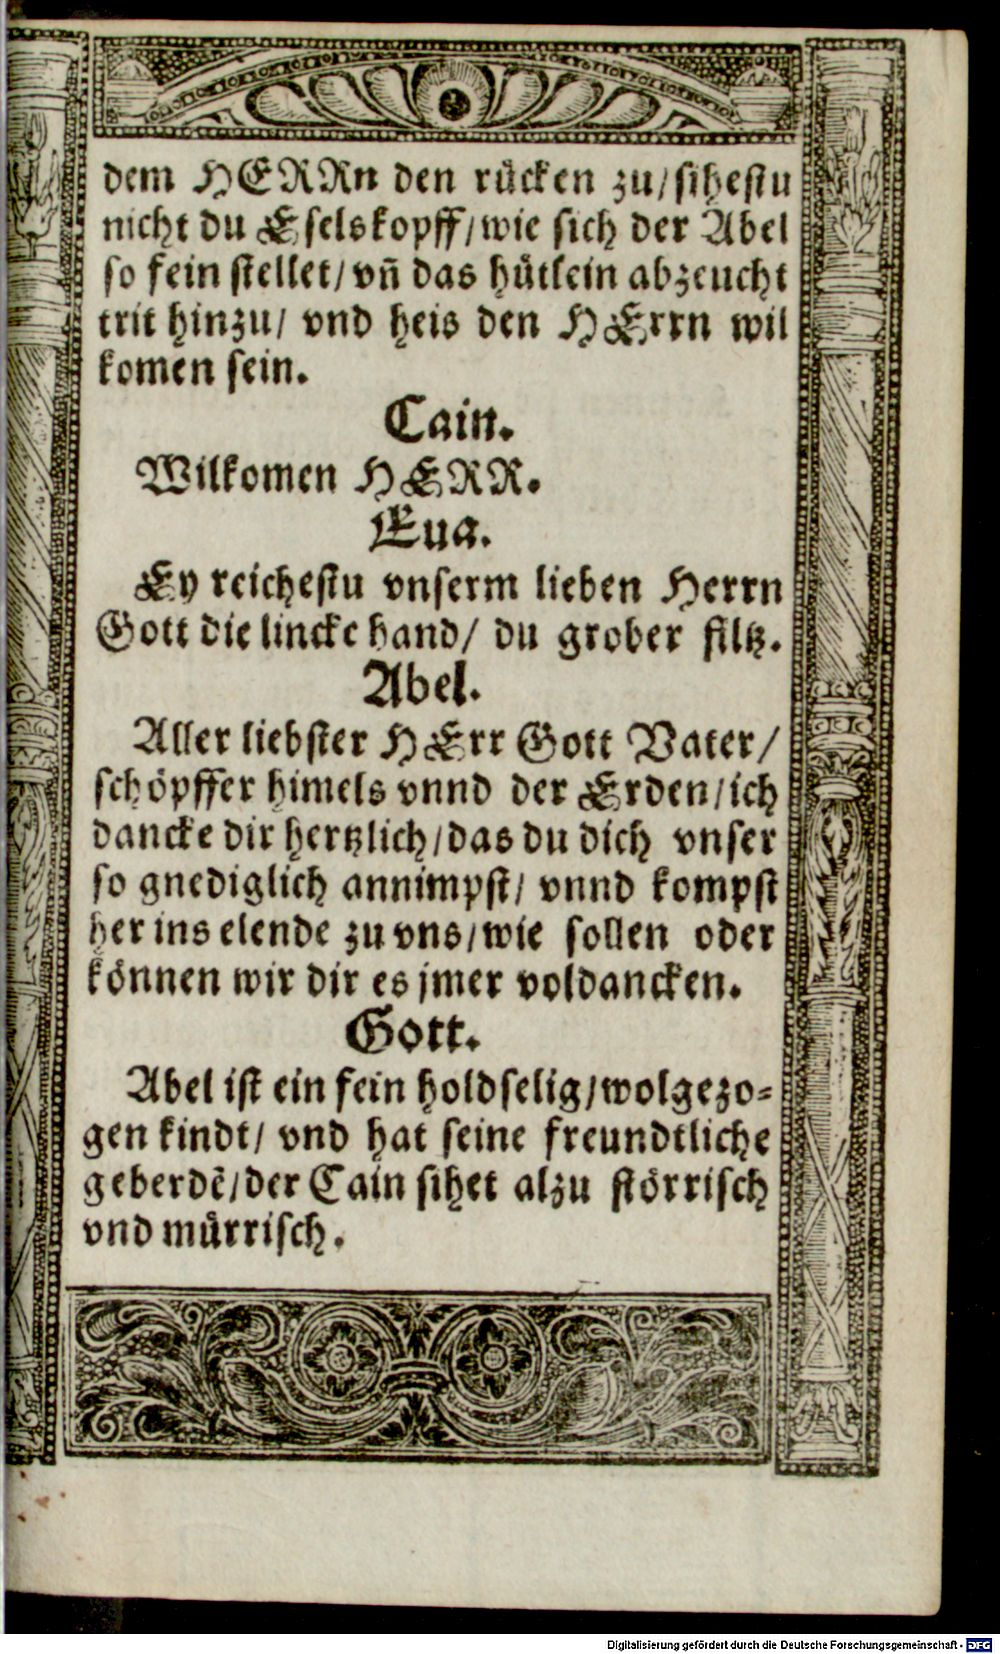 dem HERRn den rücken zu/sihestu
nicht du Eselskopff/wie sich der Abel
so fein stellet/vñ das hütlein abzeucht
trit hinzu/ vnd heis den HErrn wil
komen sein.
Cain.
Wilkomen HERR.
Eua.
Ey reichestu vnserm lieben Herrn
Gott die lincke hand/ du grober filtz.
Abel.
Aller liebster HErr Gott Vater/
schöpffer himels vnnd der Erden/ich
dancke dir hertzlich/das du dich vnser
so gnediglich annimpst/ vnnd kompst
her ins elende zu vns/wie sollen oder
können wir dir es jmer voldancken.
Gott.
Abel ist ein fein holdselig/wolgezo-
gen kindt/ vnd hat seine freundtliche
geberdẽ/der Cain sihet alzu störrisch
vnd mürrisch.
Digitalisierung gefördert durch die Deutsche Forschungsgemeinschaft - DFG